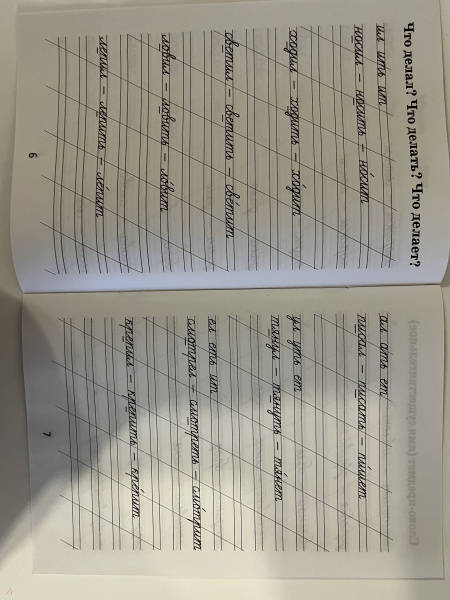 Что делал? Что делать? Что делает?
ил ить ит
носил – носить – но́сит
ходил – ходить – хо́дит
светил – светить – све́тит
ловил – ловить – ло́вит
лепил – лепить – ле́пит
6
ал ать ет
писал – писать – пи́шет
ул уть ет
тянул – тянуть – тя́нет
ел еть ит
смотрел – смотреть – смо́трит
крепил – крепить – крепит
7